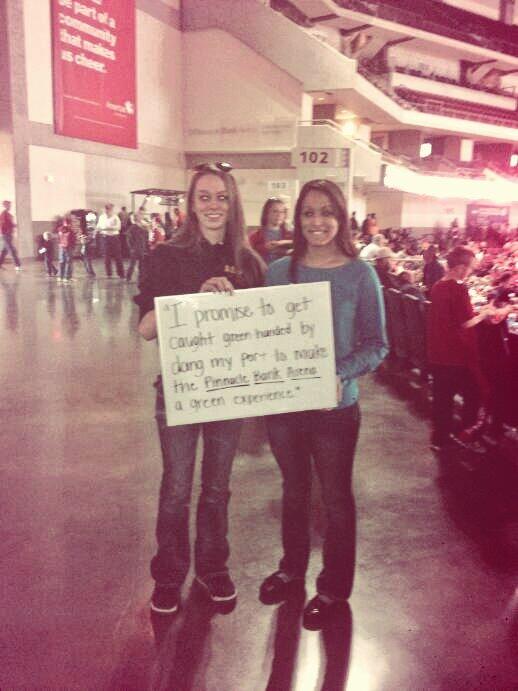 be part of a
community
that makes
us cheer.
102
103
"I promise to get
caught green handed by
doing my part to make
the Pinnacle Bank Arena
a green experience."